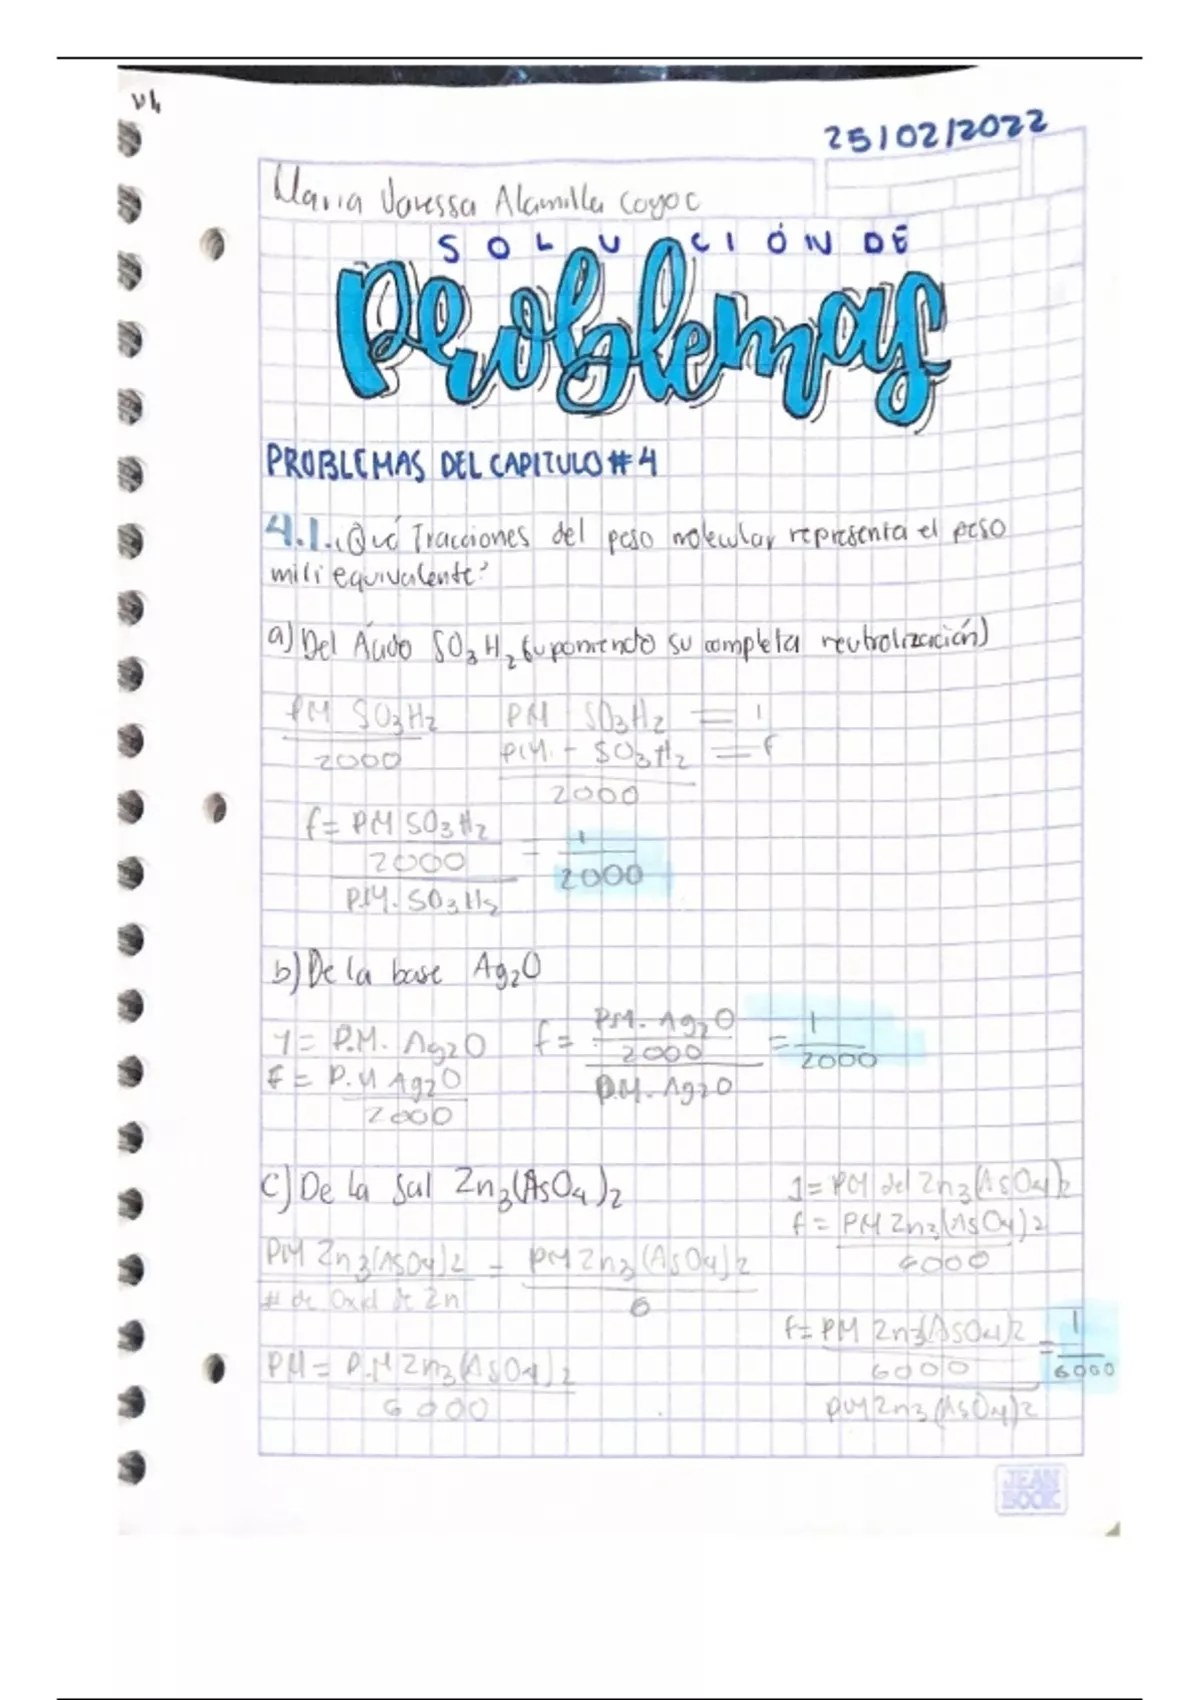 25/02/2022
Maria Vanessa Alamilla Coyoc
SOLUCIÓN DE
Problemas
PROBLEMAS DEL CAPITULO #4
4.1.¿Qué Fracciones del peso molecular representa el peso
mili equivalente?
a) Del Ácido SO3H2 (suponiendo su completa neutralización)
PM SO3H2
2000
PM SO3H2 = 1
P.M. - SO3H2 = f
2000
f= PM SO3H2
2000
P.M. SO3H2
= 1
2000
b) De la base Ag2O
1= P.M. Ag2O
f = P.M Ag2O
2000
f= P.M. Ag2O
2000
P.M. Ag2O
= 1
2000
C) De la Sal Zn3(AsO4)2
PM Zn3(AsO4)2
# de Oxid de Zn
= PM Zn3(AsO4)2
6
PM = P.M Zn3(AsO4)2
6000
1= PM del Zn3(AsO4)2
f= PM Zn3(AsO4)2
6000
f= PM Zn3(AsO4)2
6000
PM Zn3(AsO4)2
= 1
6000
JEAN
BOOK